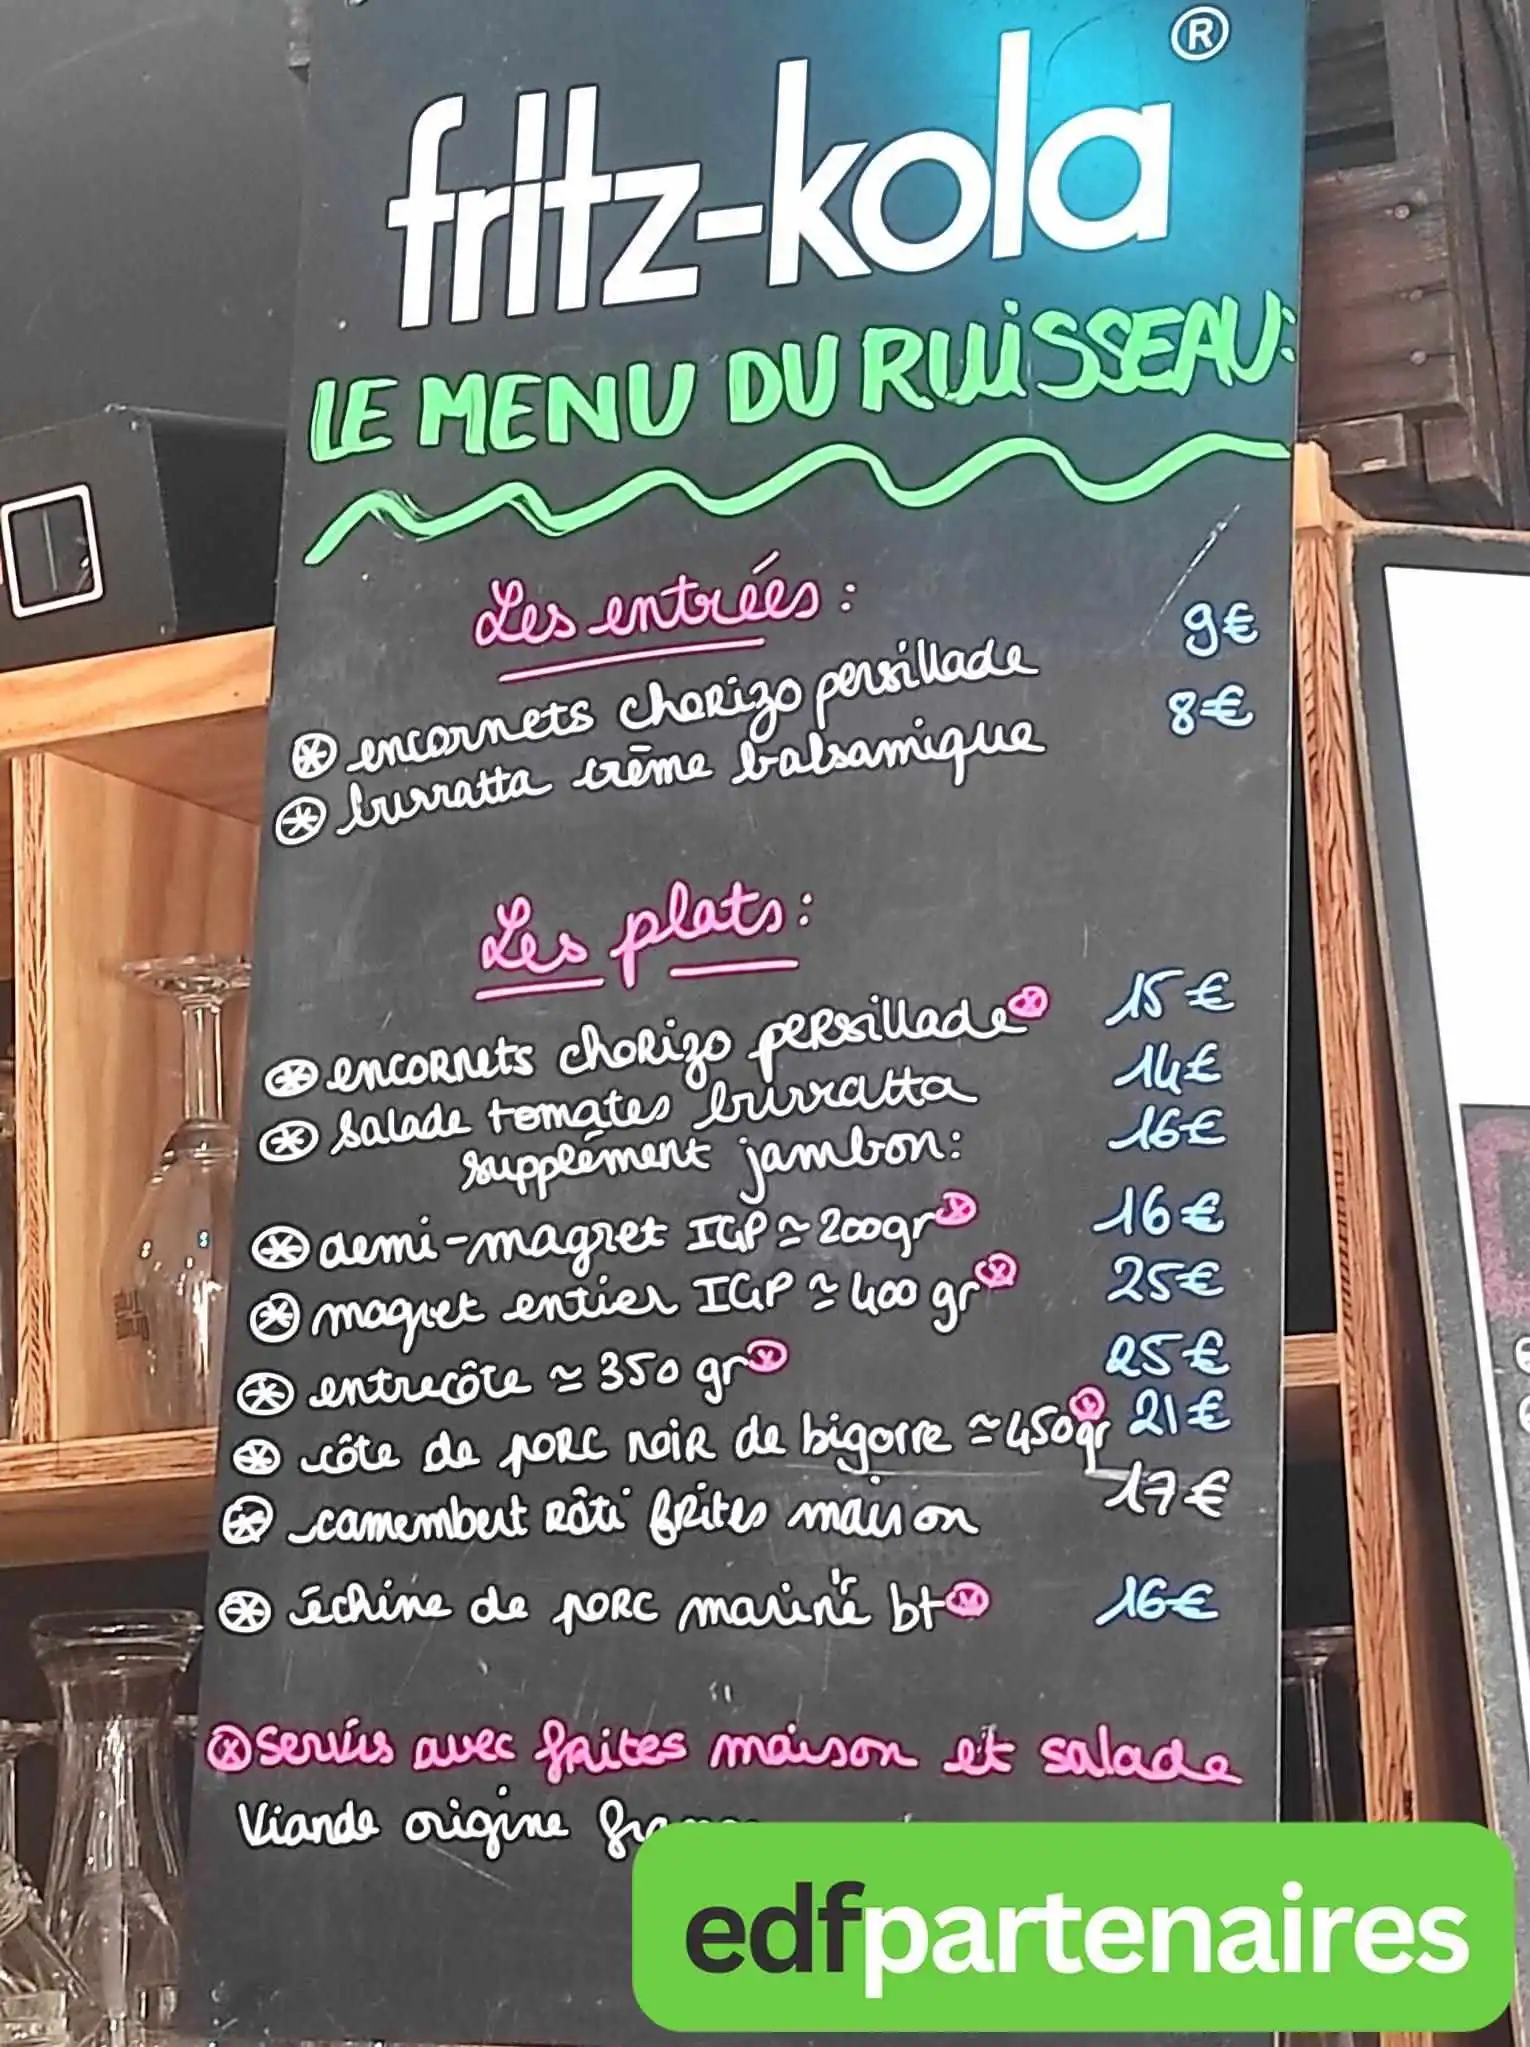 fritz-kola®
LE MENU DU RUISSEAU:
Les entrées :
⊛ encornets chorizo persillade 9€
⊛ burratta crème balsamique 8€
Les plats :
⊛ encornets chorizo persillade ⓧ 15€
⊛ salade tomates burratta 14€
supplément jambon: 16€
⊛ demi-magret IGP ≃ 200gr ⓧ 16€
⊛ magret entier IGP ≃ 400 gr ⓧ 25€
⊛ entrecôte ≃ 350 gr ⓧ 25€
⊛ côte de porc noir de bigorre ≃ 450gr ⓧ 21€
⊛ camembert rôti frites maison 17€
⊛ échine de porc mariné bt ⓧ 16€
ⓧ servis avec frites maison et salade
Viande origine
edfpartenaires